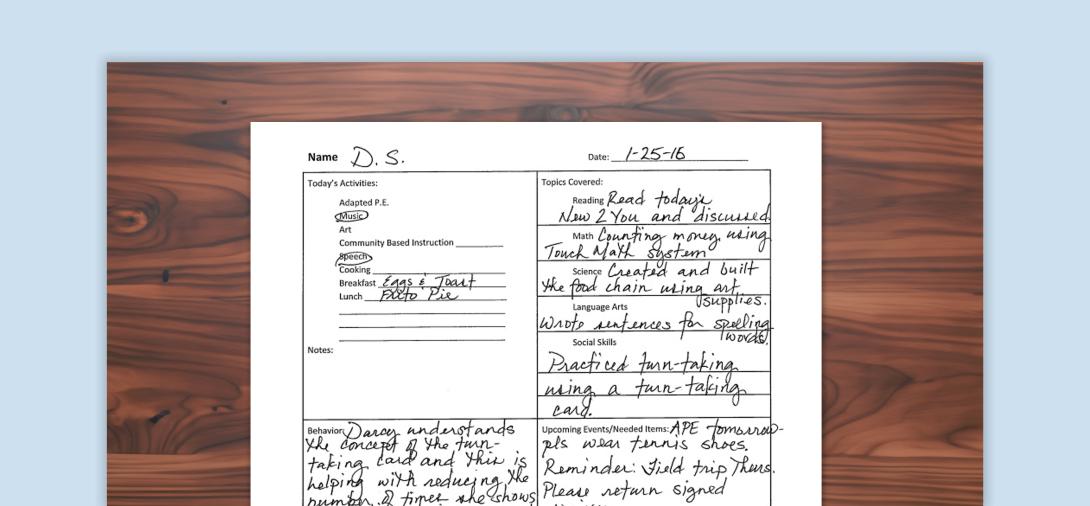 Name D. S.
Date: 1-25-16
Today's Activities:
Adapted P.E.
Music
Art
Community Based Instruction
Speech
Cooking
Breakfast Eggs & Toast
Lunch Frito Pie
Notes:
Topics Covered:
Reading Read today's
New 2 You and discussed.
Math Counting money using
Touch Math system
Science Created and built
the food chain using art
supplies.
Language Arts
Wrote sentences for spelling
words.
Social Skills
Practiced turn-taking
using a turn-taking
card.
Behavior: Darcy understands
the concept of the turn-
taking card and this is
helping with reducing the
number of times she shows
Upcoming Events/Needed Items: APE tomorrow-
pls wear tennis shoes.
Reminder: Field trip Thurs.
Please return signed